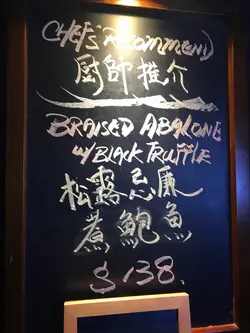 CHEF'S RECOMMEND
厨師推介
BRAISED ABALONE
W/ BLACK TRUFFLE
松露忌廉
煮鮑魚
$138.